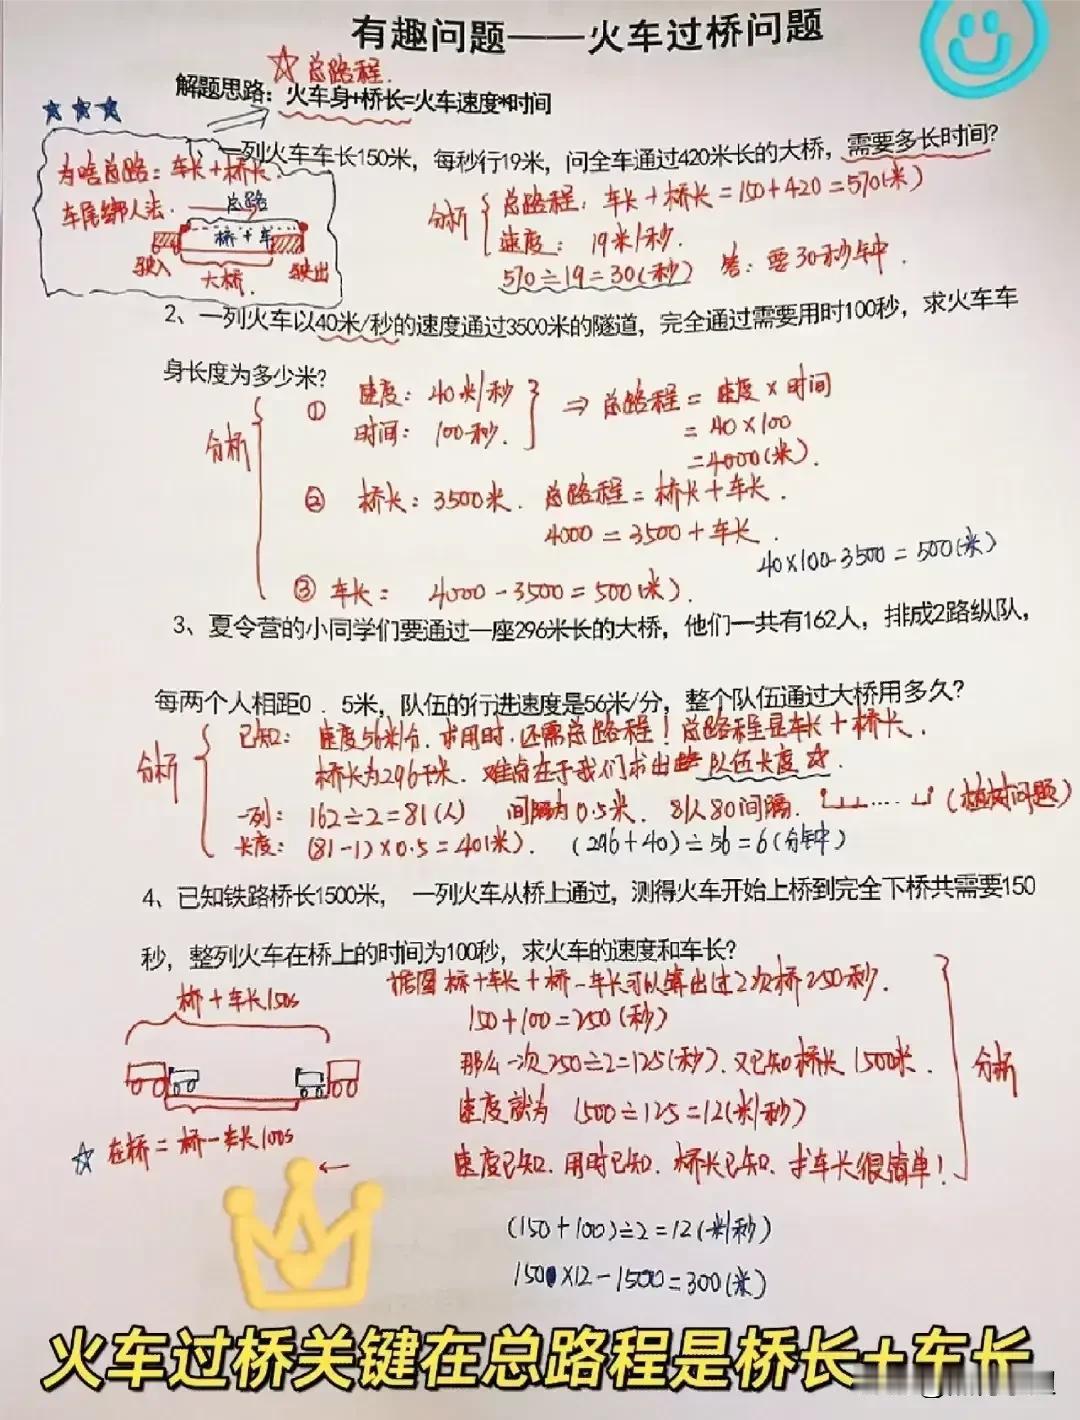 有趣问题——火车过桥问题
☆总路程.
解题思路：火车身+桥长=火车速度*时间
1、一列火车车长150米，每秒行19米，问全车通过420米长的大桥，需要多长时间?
为啥总路：车长+桥长.
车尾绑人法.
总路
桥+车
驶入
大桥.
驶出
分析
总路程：车长+桥长=150+420=570(米)
速度：19米/秒.
570÷19=30(秒) 答：要30秒钟.
2、一列火车以40米/秒的速度通过3500米的隧道，完全通过需要用时100秒，求火车车
身长度为多少米?
分析
① 速度：40米/秒
时间：100秒.
⇒ 总路程=速度×时间
=40×100
=4000(米).
② 桥长：3500米. 总路程=桥长+车长.
4000=3500+车长.
40×100-3500=500(米)
③ 车长： 4000-3500=500(米).
3、夏令营的小同学们要通过一座296米长的大桥，他们一共有162人，排成2路纵队，
每两个人相距0．5米，队伍的行进速度是56米/分，整个队伍通过大桥用多久?
分析
已知：速度56米/分.求用时.还需总路程！总路程是车长+桥长.
桥长为296千米.难点在于我们求出队伍长度☆.
一列：162÷2=81(人) 间隔为0.5米. 81人80间隔. (植树问题)
长度：(81-1)×0.5=40(米). (296+40)÷56=6(分钟)
4、已知铁路桥长1500米， 一列火车从桥上通过，测得火车开始上桥到完全下桥共需要150
秒，整列火车在桥上的时间为100秒，求火车的速度和车长?
桥+车长150s
☆在桥=桥-车长100s
据图桥+车长+桥-车长可以算出过2次桥250秒.
150+100=250(秒)
那么一次250÷2=125(秒).又已知桥长1500米.
速度就为 1500÷125=12(米/秒)
速度已知.用时已知.桥长已知.求车长很简单！
分析
(150+100)÷2=12(米/秒)
150×12-1500=300(米)
火车过桥关键在总路程是桥长+车长